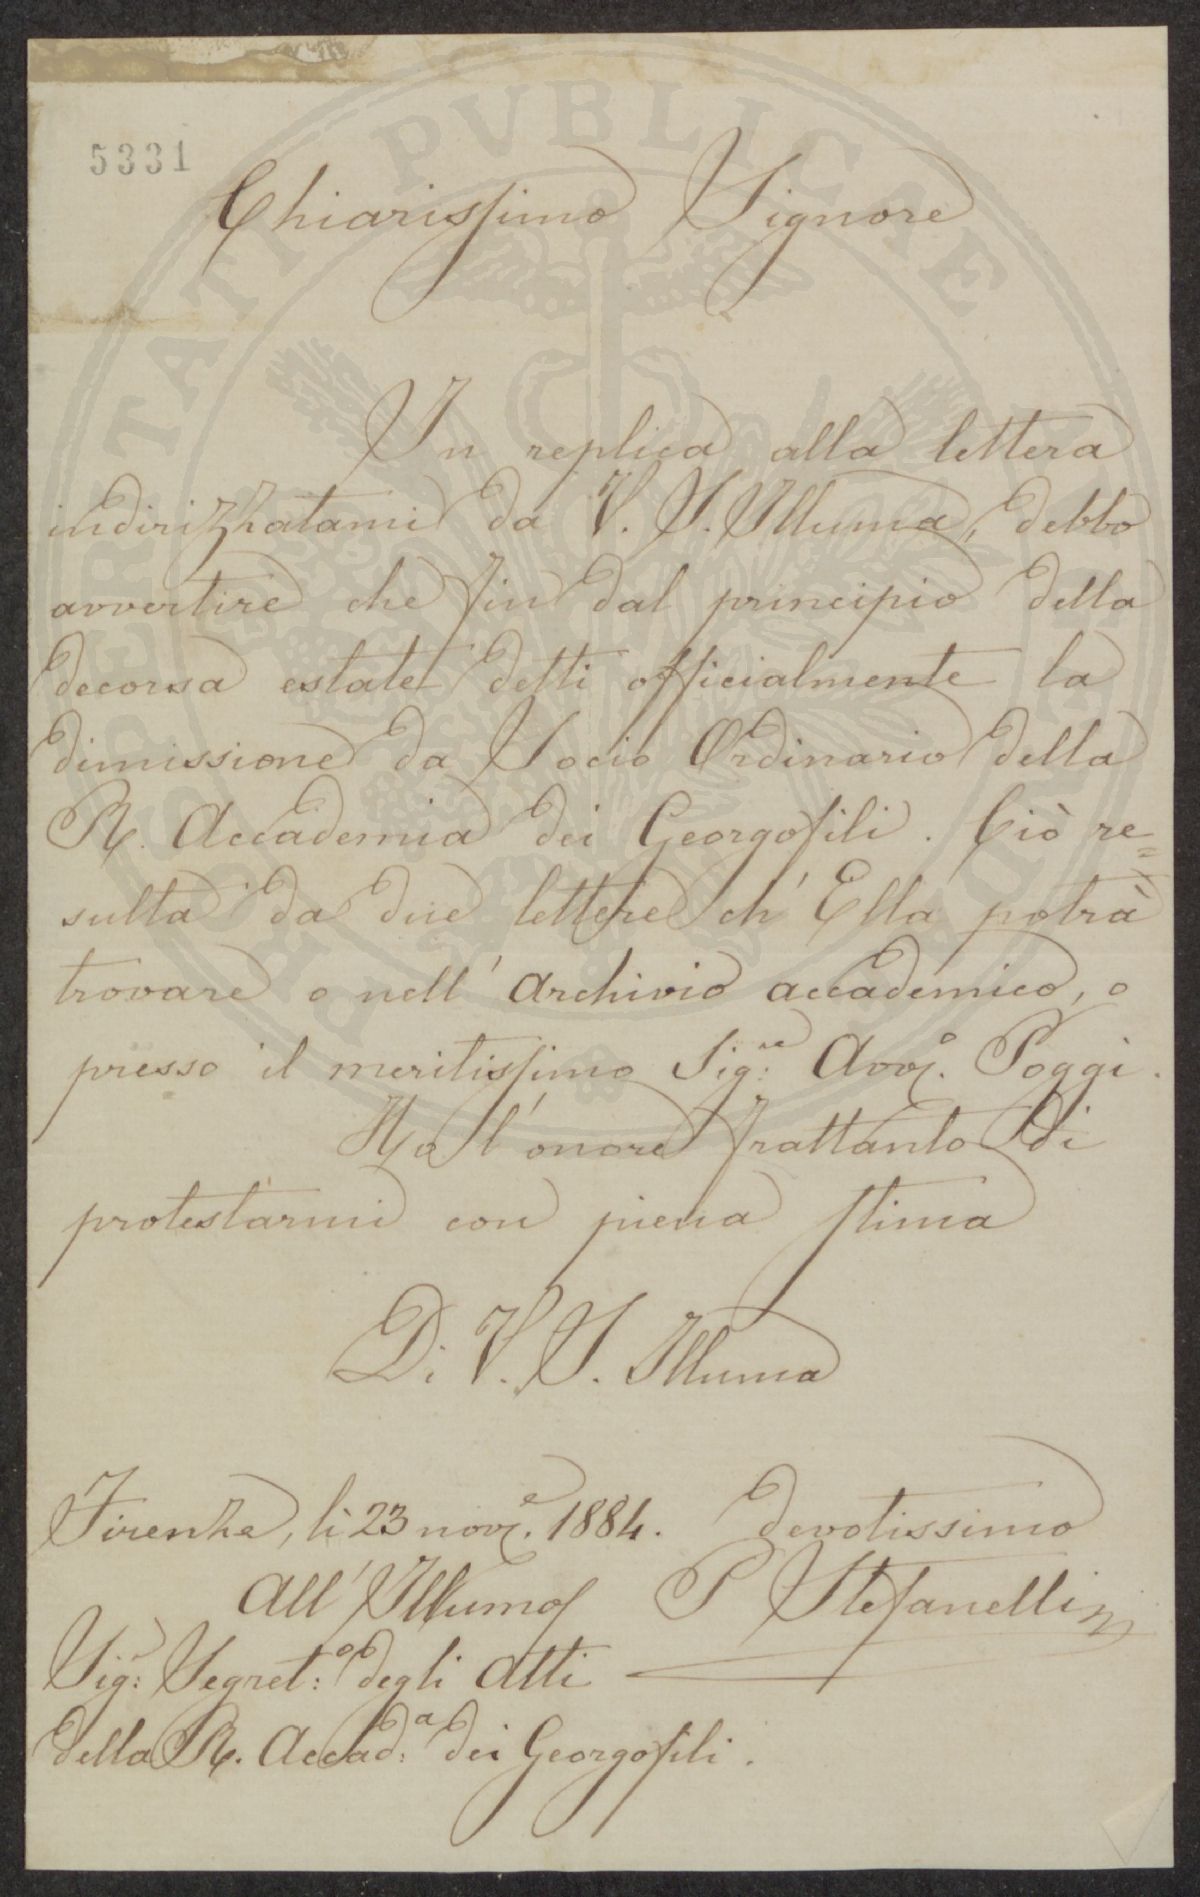 PROSPERITATI PVBLICAE AVGENDAE
5331
Chiarissimo Signore
In replica alla lettera
indirizzatami da V. S. Illuma, debbo
avvertire che fin dal principio della
decorsa estate detti officialmente la
dimissione da Socio Ordinario della
R. Accademia dei Georgofili. Ciò re=
sulta da due lettere ch' Ella potrà
trovare o nell' Archivio accademico, o
presso il meritissimo Sig:re Avv.o Poggi.
Ho l'onore frattanto di
protestarmi con piena stima
Di V. S. Illuma
Firenze, li 23 nov.e 1884. devotissimo
All' Illumo P Stefanelli
Sig: Segret:o degli Atti
della R. Accad:a dei Georgofili.